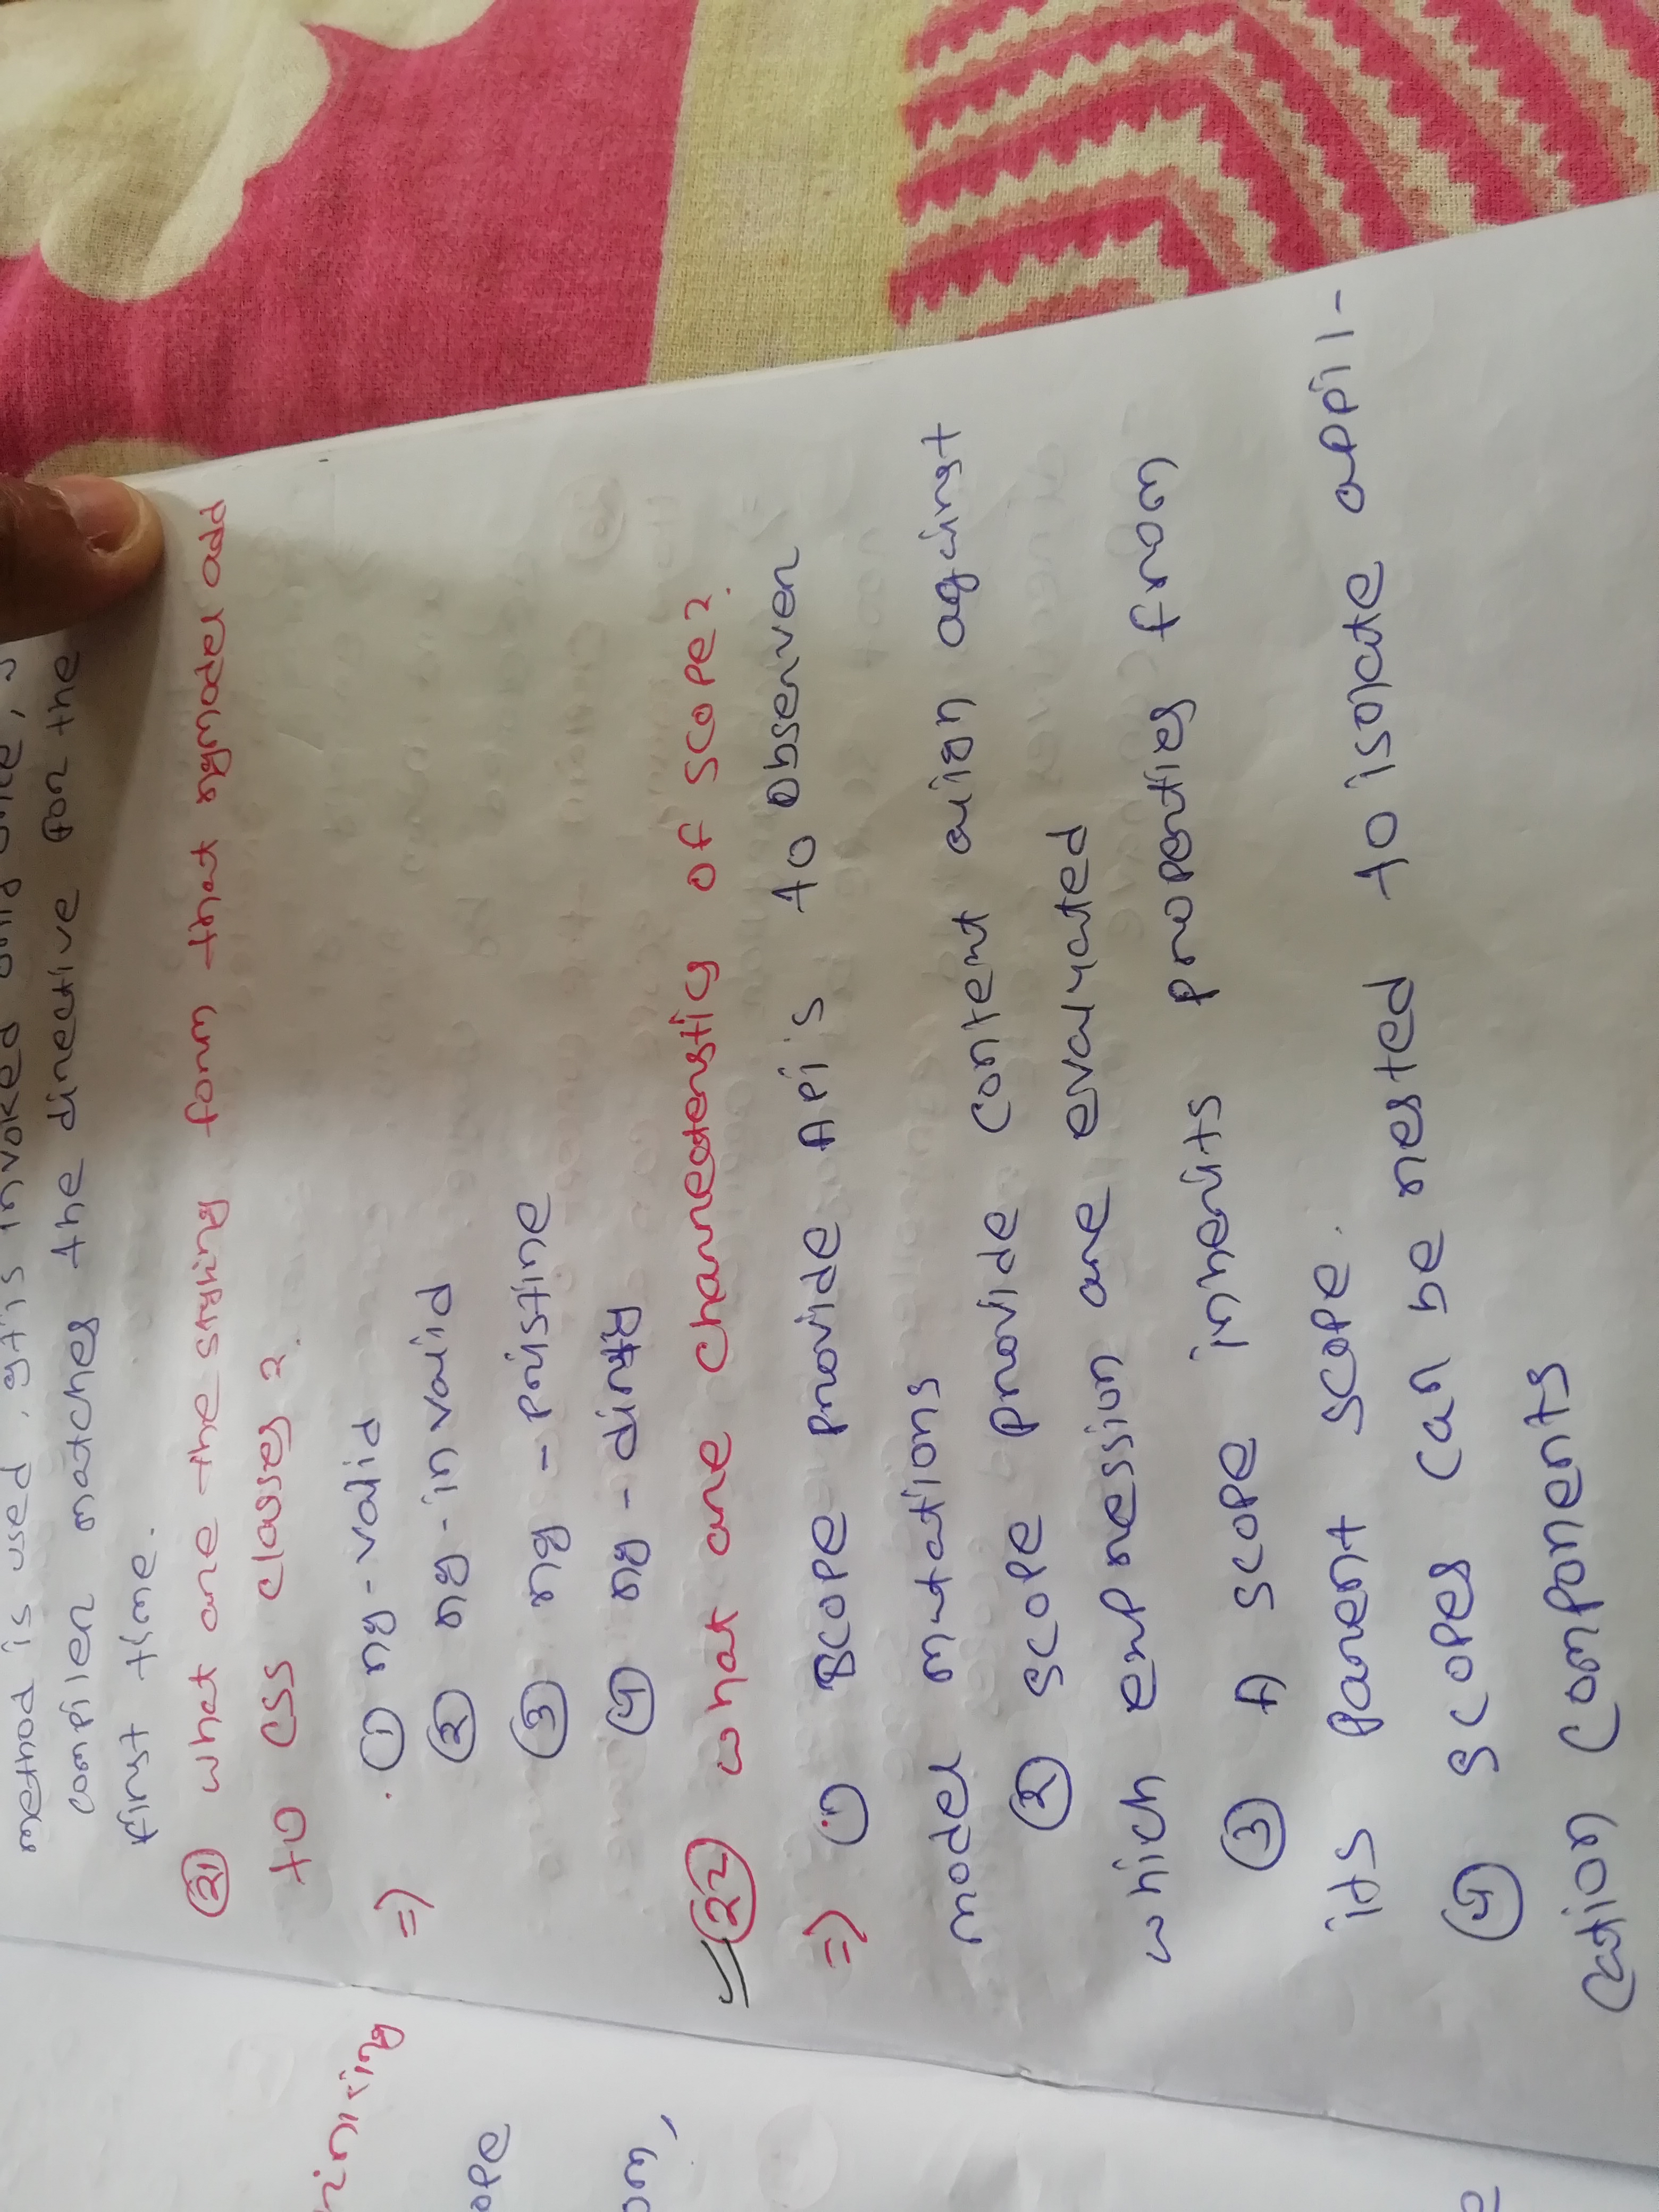 method is used, It is invoked only once,
compiler matches the directive for the
first time.
21 what are the styling form that ngmodel add
to CSS classes?
=> 1 ng-valid
2 ng-invalid
3 ng-pristine
4 ng-dirty
22 what are charrecterstics of scope?
=> 1 Scope provide Api's to Observer
model mutations
2 scope provide content align against
which expression are evaluated
3 A scope inherits properties from
its parent scope.
4 scopes can be nested to isolate appil-
cation components
ope
om,
e